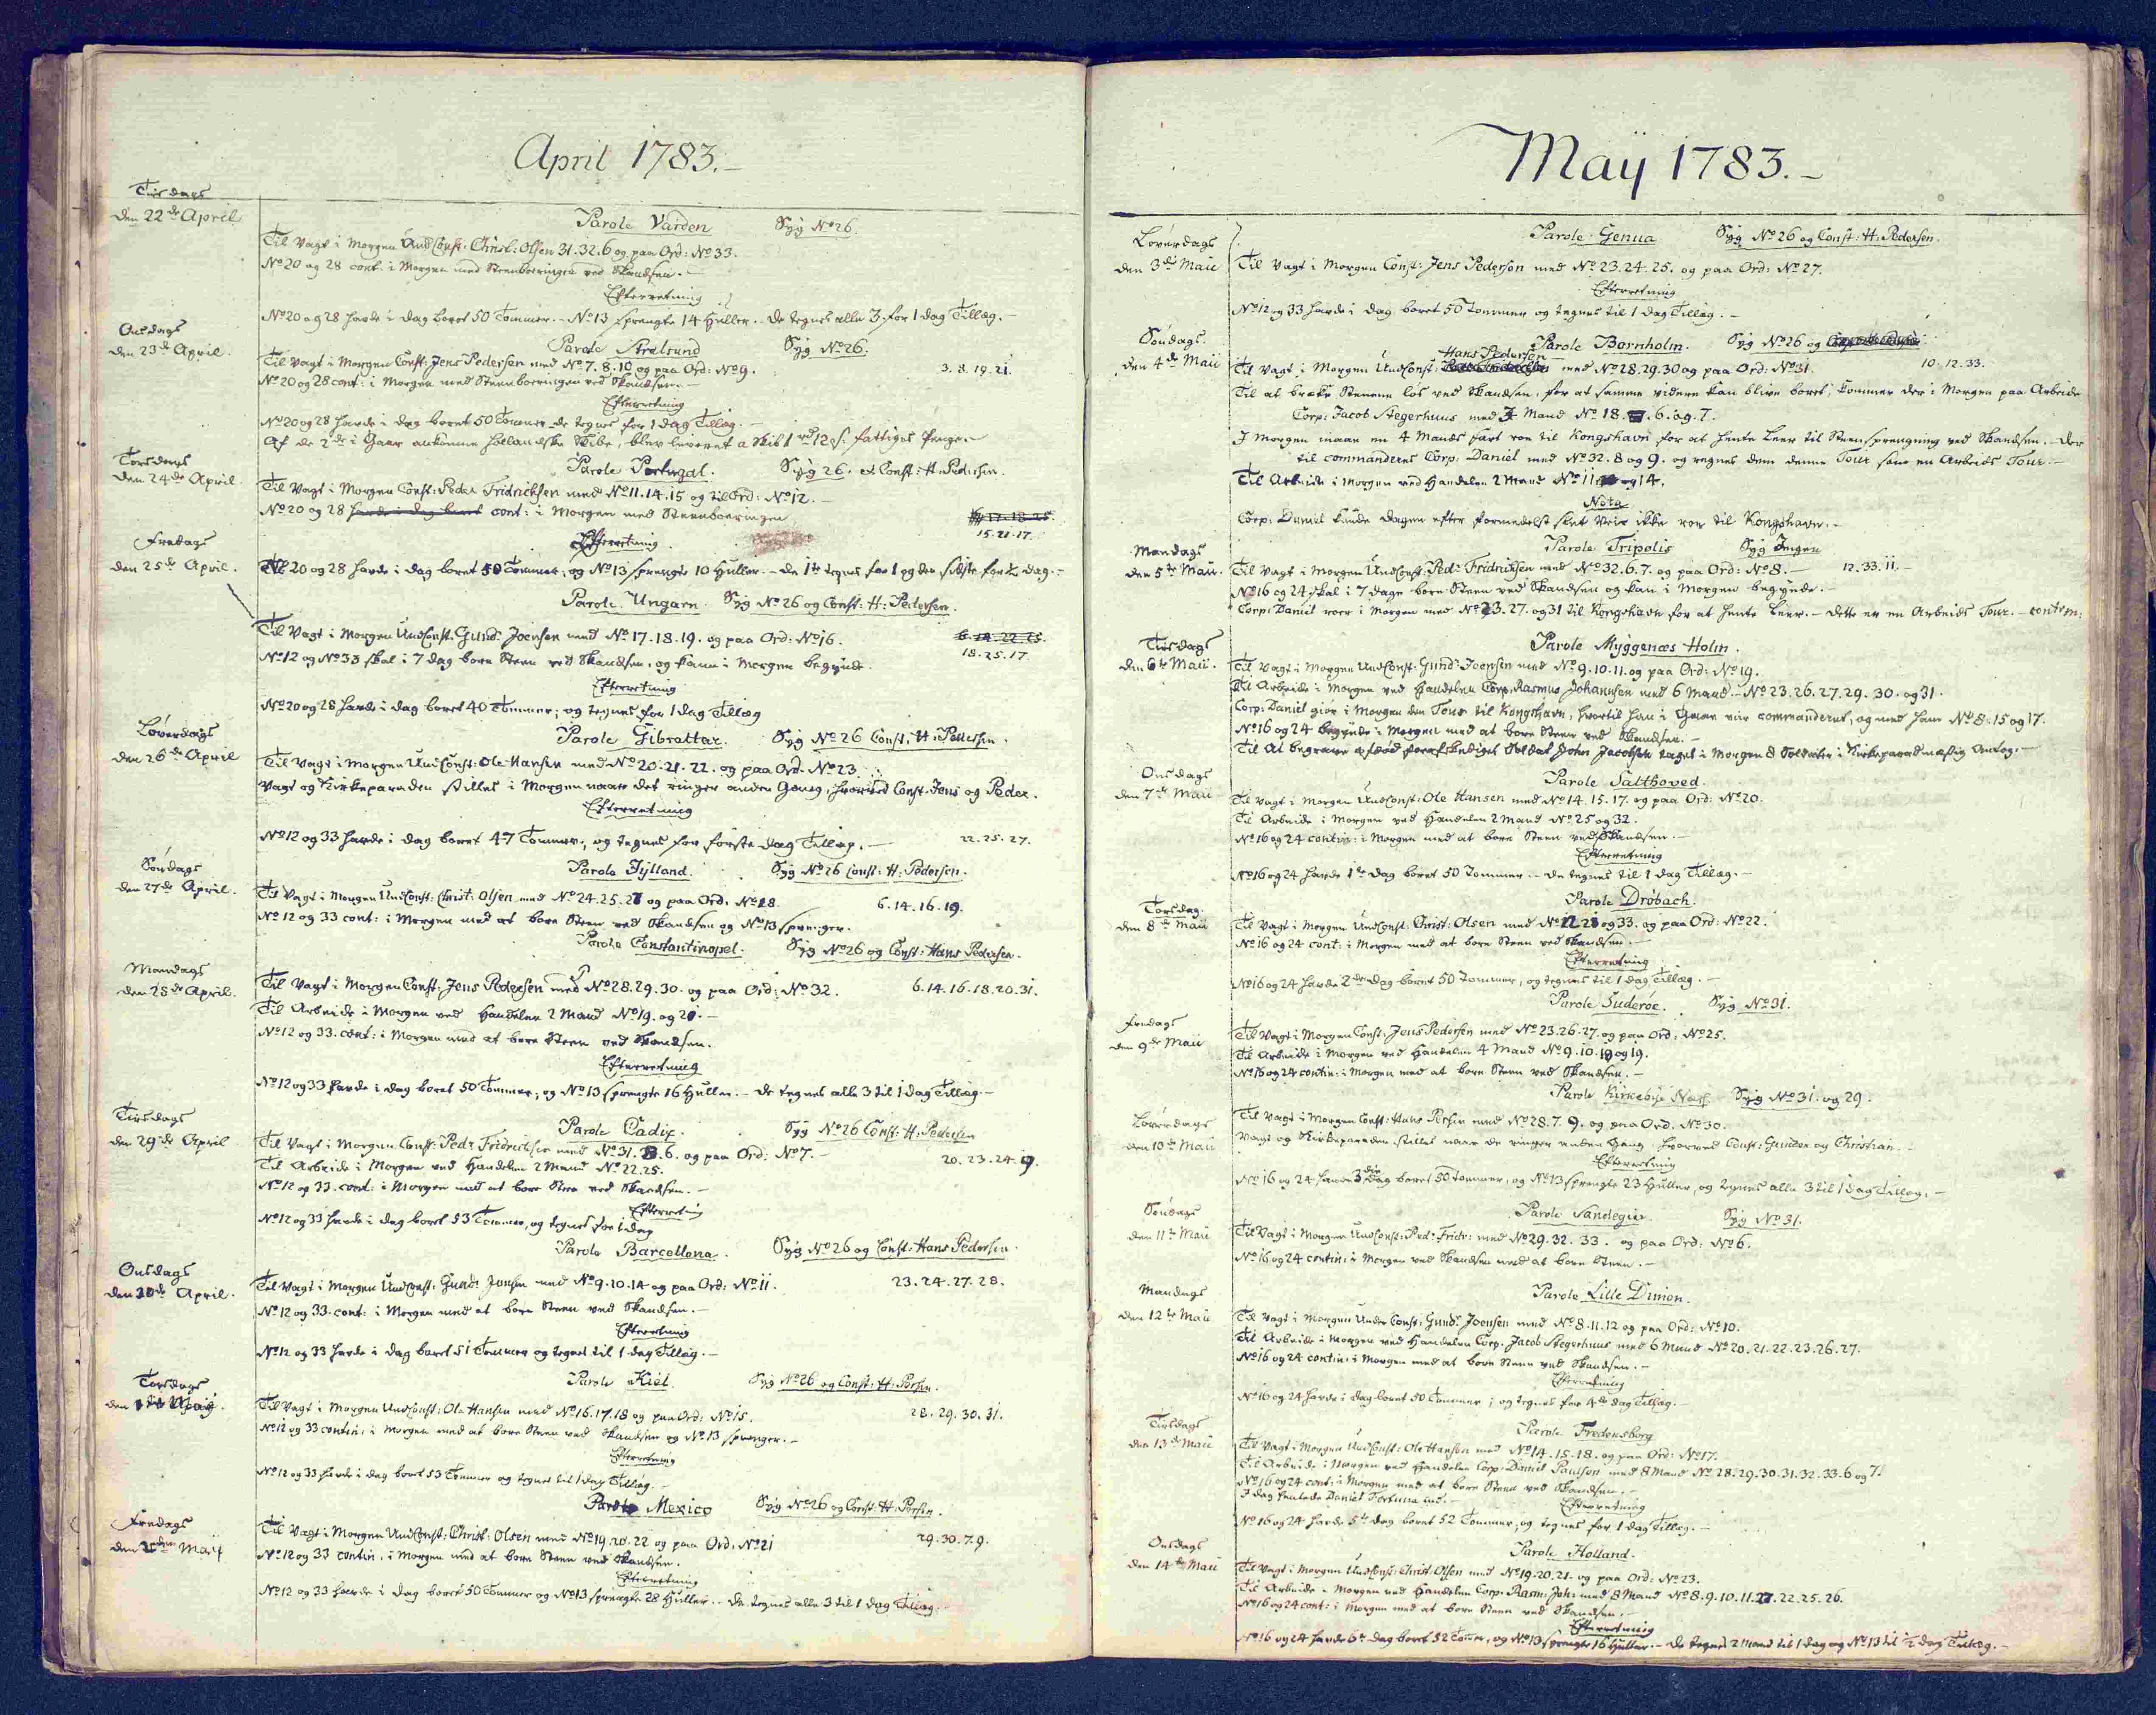 April 1783.-
Tirsdags
den 22de April
Parole Varden Syg No 26.
Til Vagt i Morgen Und Const. Christ: Olsen 31.32.6 og paa Ord: No 33.
No 20 og 28 cont. i Morgen med Steenboeringen ved Skandsen.-
Efterretning
No 20 og 28 havde i dag boret 50 Tommer.- No 13 sprengte 14 Huller.- De tegnes alle 3. for 1 dag Tillæg.-
Onsdags
den 23de April.
Parole Stralsund Syg No 26.
Til Vagt i Morgen Const: Jens Pedersen med No 7.8.10 og paa Ord: No 9. 3.8.19.21.
No 20 og 28 cont: i Morgen med Steenboeringen ved Skandsen.-
Efterretning
No 20 og 28 havde i dag boret 50 Tommer. de tegnes for 1 dag Tillæg.-
Af de 2de i Gaar ankomne holandske Skibe, blev leveret a Skib 1 rd 12 s. fattiges Penge
Torsdags
den 24de April
Parole Portugal. Syg 26. et Const: H: Pedersen.
Til Vagt i Morgen Const: Peder Fridrichsen med No 11.14.15 og til Ord: No 12.-
No 20 og 28 havde i dag boret cont: i Morgen med Steenboeringen
15.21.17.
Fredags
den 25de April.
Efterretning
No 20 og 28 havde i dag boret 50 Tommer, og No 13 sprengte 10 Huller.- De 1te tegnes for 1 og den sidste for ½ dag.-
Parole Ungarn. Syg No 26 og Const: H: Pedersen.
Til Vagt i Morgen UndConst: Gund: Joensen med No 17.18.19. og paa Ord: No 16. 6.14.22.25.
No 12 og No 33 skal i 7 dag bore Steen ved Skandsen, og kann i Morgen begynde. 18.25.17.
Efterretning
No 20 og 28 havde i dag boret 40 Tommer; og tegnes for 1 dag Tillæg
Løverdags
den 26de April
Parole Gibraltar. Syg No 26 Const: H: Pedersen.
Til Vagt i Morgen UndConst: Ole Hansen med No 20.21.22. og paa Ord. No 23.
Vagt og Kirkeparaden stilles i Morgen naar det ringer anden Gang, hvorved Const. Jens og Peder.
Efterretning
No 12 og 33 havde i dag boret 47 Tommer, og tegnes for første dag Tillæg.- 22.25.27.
Søndags
den 27de April.
Parole Jylland. Syg No 26 Const: H. Pedersen.
Til Vagt i Morgen UndConst: Christ: Olsen med No 24.25.27 og paa Ord: No 28. 6.14.16.19.
No 12 og 33 cont: i Morgen med at bore Steen ved Skandsen og No 13 sprenger.
Parole Constantinopel. Syg No 26 og Const: Hans Pedersen.
Mandags
den 28de April.
Til Vagt i Morgen Const. Jens Pedersen med No 28.29.30. og paa Ord: No 32. 6.14.16.18.20.31.
Til Arbeide i Morgen ved Handelen 2 Mand No 19. og 20.-
No 12 og 33. cont: i Morgen med at bore Steen ved Skandsen.
Efterretning
No 12 og 33 havde i dag boret 50 Tommer; og No 13 sprengte 16 Huller.- De tegnes alle 3 til 1 dag Tillæg.-
Tirsdags
den 29de April
Parole Cadix. Syg No 26 Const: H: Pedersen
Til Vagt i Morgen Const: Ped: Fridrichsen med No 31.8.6. og paa Ord: No 7.-
Til Arbeide i Morgen ved Handelen 2 Mand No 22.25. 20.23.24.19.
No 12 og 33. cont: i Morgen med at bore Steen ved Skandsen.-
Efterretning
No 12 og 33 havde i dag boret 53 Tommer, og tegnes for 1 dag
Parole Barcellona. Syg No 26 og Const: Hans Pedersen
Onsdags
den 30de April.
Til Vagt i Morgen UndConst: Gund: Jonsen med No 9.10.14 og paa Ord: No 11. 23.24.27.28.
No 12 og 33. cont: i Morgen med at bore Steen ved Skandsen.-
Efterretning
No 12 og 33 havde i dag boret 51 Tommer og tegnes til 1 dag Tillæg.-
Torsdags
den 1ste Maij.
Parole Kiel. Syg No 26 og Const: H: Persen.
Til Vagt i Morgen UndConst: Ole Hansen med No 16.17.18 og paa Ord: No 15. 28.29.30.31.
No 12 og 33 contin: i Morgen med at bore Steen ved Skandsen og No 13 sprenger.-
Efterretning
No 12 og 33 havde i dag boret 53 Tommer og tegnes til 1 dag Tillæg.-
Parole Mexico Syg No 26 og Const: H: Persen.
Fredags
den 2den Maij
Til Vagt i Morgen UndConst: Christ: Olsen med No 19.20.22 og paa Ord: No 21 29.30.7.9.
No 12 og 33 contin: i Morgen med at bore Steen ved Skandsen.
Efterretning
No 12 og 33 havde i dag boret 50 Tommer og No 13 sprengte 28 Huller.- De tegnes alle 3 til 1 dag Tillæg.
Maÿ 1783.-
Løverdags
den 3die Maii
Parole Genua Syg No 26 og Const: H: Pedersen.
Til Vagt i Morgen Const: Jens Pedersen med No 23.24.25. og paa Ord: No 27.
Efterretning
No 12 og 33 havde i dag boret 50 Tommer og tegnes til 1 dag Tillæg.-
Søndags.
den 4de Maii
Parole Bornholm. Syg No 26 og
Hans Pedersen
Til Vagt i Morgen UndConst: med No 28.29.30 og paa Ord: No 31. 10.12.33.
Til at bræke Stenene los ved Skandsen, for at samme videre kan blive boret, kommer der i Morgen paa Arbeide
Corp: Jacob Stegerhuus med 3 Mand No 18. 6. og 7.
I Morgen maae en 4 Mands fart roe til Kongshavn for at hente Leer til Steensprengning ved Skandsen.- Der
til commanderes Corp: Daniel med No 32.8 og 9. og regnes dem denne Tour som en Arbeids Tour.-
Til Arbeide i Morgen ved Handelen 2 Mand No 11 og 14.
Nota
Corp: Daniel kunde dagen efter formedelst slet Veir ikke roe til Kongshavn.-
Mandags
den 5te Maii.
Parole Tripolis Syg Ingen
Til Vagt i Morgen UndConst: Ped: Fridrichsen med No 32.6.7. og paa Ord: No 8.- 12.33.11.-
No 16 og 24 skal i 7 dage bore Steen ved Skandsen og kan i Morgen begynde.-
Corp: Daniel roer i Morgen med No 23.27. og 31 til Kongshavn for at hente Leer.- Dette er en Arbeids Tour.- contrm:
Tirsdags
den 6te Maii.
Parole Myggenæs Holm.
Til Vagt i Morgen UndConst: Gund: Joensen med No 9.10.11. og paa Ord: No 19.
Til Arbeide i Morgen ved Handelen Corp: Rasmus Johannsen med 6 Mand.- No 23.26.27.29.30. og 31.
Corp: Daniel giør i Morgen den Tour til Kongshavn, hvortil han i Gaar var commanderet, og med ham No 8.15 og 17.
No 16 og 24 begynde i Morgen med at bore Steen ved Skandsen.-
Til At begrave afdød forafskediget Soldat John Jacobsen taget i Morgen 8 Soldater i Kirkeparademæssig Antog.-
Onsdags
den 7de Maii
Parole Salthoved.
Til Vagt i Morgen UndConst: Ole Hansen med No 14.15.17. og paa Ord: No 20.
Til Arbeide i Morgen ved Handelen 2 Mand No 25 og 32.
No 16 og 24 contin: i Morgen med at bore Steen ved Skandsen.-
Efterretning
No 16 og 24 havde 1te dag boret 50 Tommer.- De tegnes til 1 dag Tillæg.-
Torsdag.
den 8de Maii
Parole Drøbach.
Til Vagt i Morgen UndConst: Christ: Olsen med No 12.21 og 33. og paa Ord: No 22.
No 16 og 24 cont: i Morgen med at bore Steen ved Skandsen.-
Efterretning
No 16 og 24 havde 2den dag boret 50 Tommer, og tegnes til 1 dag Tillæg.-
Parole Suderöe. Syg No 31.
Fredags
den 9de Maii
Til Vagt i Morgen Const: Jens Pedersen med No 23.26.27. og paa Ord: No 25.
Til Arbeide i Morgen ved Handelen 4 Mand No 9.10.18 og 19.
No 16 og 24 contin: i Morgen med at bore Steen ved Skandsen.-
Parole Kirkebøe Næss. Syg No 31. og 29.
Løverdags
den 10de Maii
Til Vagt i Morgen Const: Hans Persen med No 28.7.9. og paa Ord. No 30.
Vagt og Kirkeparaden stilles naar de ringer anden Gang, hvorved Const: Gunder og Christian.-
Efterretning
No 16 og 24 havde 3die dag boret 50 Tommer, og No 13 sprengte 23 Huller, og tegnes alle 3 til 1 dag Tillæg.-
Søndags
den 11te Maii
Parole Sandegier. Syg No 31.
Til Vagt i Morgen UndConst: Ped: Fridr: med No 29.32.33. og paa Ord: No 6.
No 16 og 24 contin: i Morgen ved Skandsen med at bore Steen.-
Mandags
den 12te Maii
Parole Lille Dimon.
Til Vagt i Morgen Under Const: Gund: Joensen med No 8.11.12 og paa Ord: No 10.
Til Arbeide i Morgen ved Handelen Corp. Jacob Stegerhuus med 6 Mand No 20.21.22.23.26.27.
No 16 og 24 contin: i Morgen med at bore Steen ved Skandsen.-
Efterretning
No 16 og 24 havde i dag boret 50 Tommer; og tegnes for 4de dag Tillæg.-
Tirsdags
den 13de Maii
Parole Fredensborg
Til Vagt i Morgen UndConst: Ole Hansen med No 14.15.18. og paa Ord: No 17.
Til Arbeide i Morgen ved Handelen Corp: Daniel Paulsen med 8 Mand No 28.29.30.31.32.33.6 og 7.
No 16 og 24 cont: i Morgen med at bore Steen ved Skandsen.-
I dag hentede Daniel Fortuna ind.-
Efterretning
No 16 og 24 havde 5te dag boret 52 Tommer, og tegnes for 1 dag Tillæg.-
Onsdags
den 14de Maii
Parole Holland.
Til Vagt i Morgen UndConst: Christ: Olsen med No 19.20.21. og paa Ord: No 23.
Til Arbeide i Morgen ved Handelen Corp: Rasm: Joh: med 8 Mand No 8.9.10.11.27.22.25.26.
No 16 og 24 cont: i Morgen med at bore Steen ved Skandsen.-
Efterretning
No 16 og 24 havde 6te dag boret 52 Tomer, og No 13 sprengte 16 Huller.- De tegnes 2 Mand til 1 dag og No 13 til ½ dag Tillæg.-